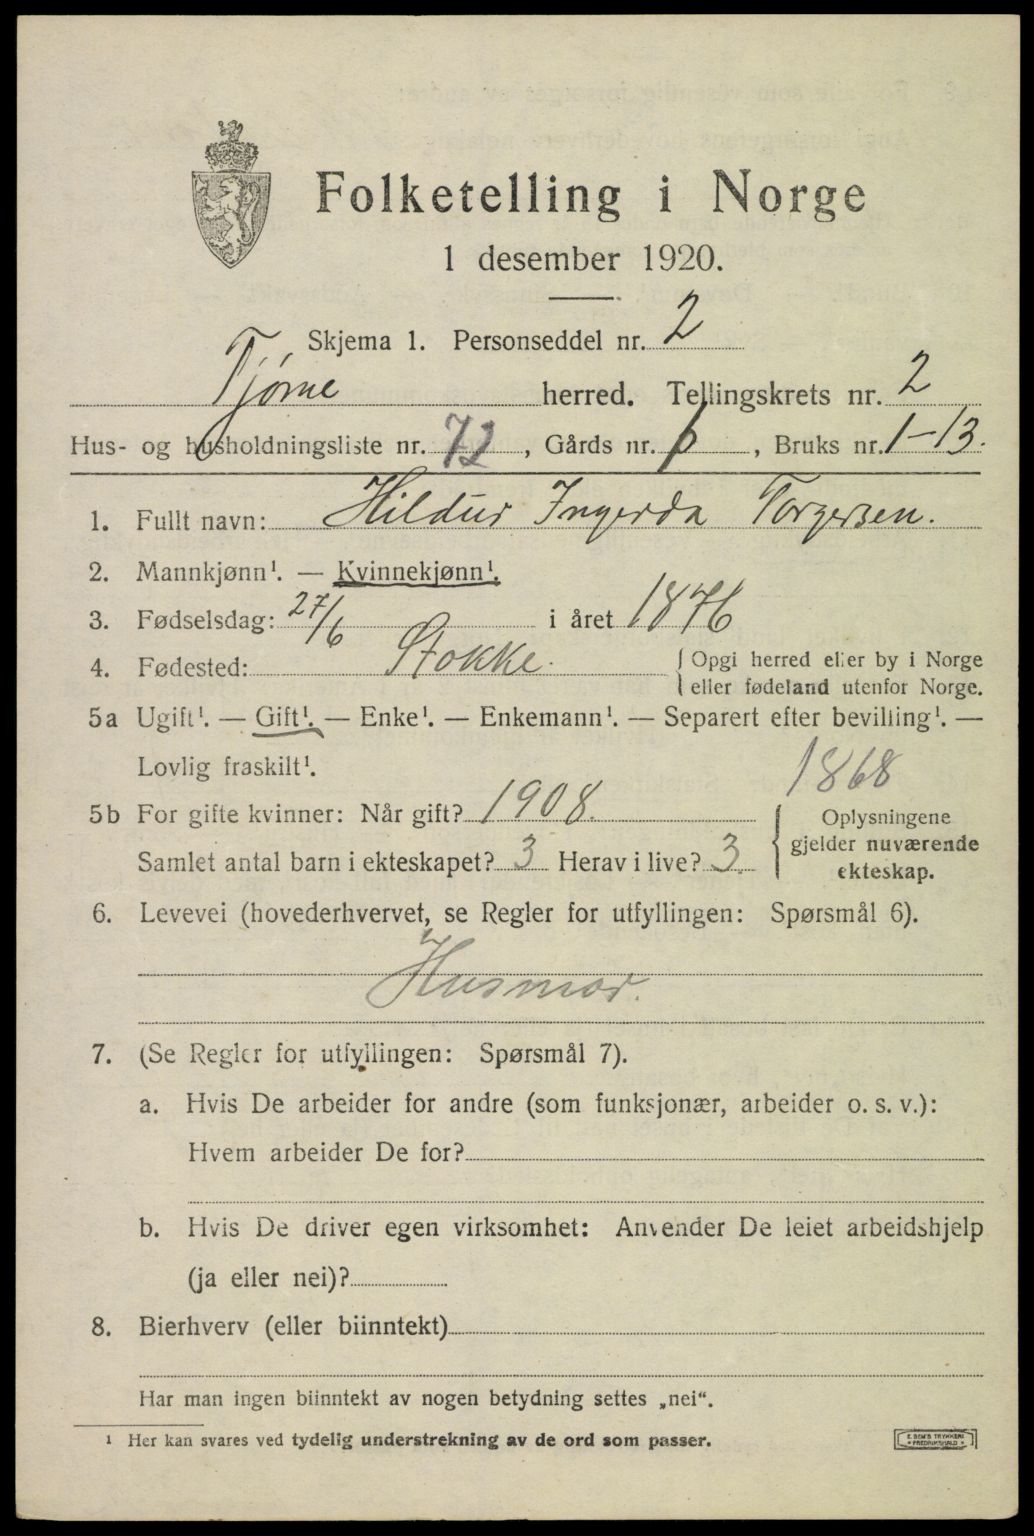 Folketelling i Norge
1 desember 1920.
Skjema 1. Personseddel nr. 2
Tjøme herred. Tellingskrets nr. 2
Hus- og husholdningsliste nr. 72, Gårds nr. 6, Bruks nr. 1-13.
1. Fullt navn: Hildur Ingerda Torgersen.
2. Mannkjønn¹. — Kvinnekjønn¹.
3. Fødselsdag: 27/6 i året 1876
4. Fødested: Stokke. { Opgi herred eller by i Norge
eller fødeland utenfor Norge.
5a Ugift¹. — Gift¹. — Enke¹. — Enkemann¹. — Separert efter bevilling¹. —
Lovlig fraskilt¹.
1868
5b For gifte kvinner: Når gift? 1908. { Oplysningene
gjelder nuværende
Samlet antal barn i ekteskapet? 3 Herav i live? 3. ekteskap.
6. Levevei (hovederhvervet, se Regler for utfyllingen: Spørsmål 6).
Husmor.
7. (Se Regler for utfyllingen: Spørsmål 7).
a. Hvis De arbeider for andre (som funksjonær, arbeider o. s. v.):
Hvem arbeider De for?
b. Hvis De driver egen virksomhet: Anvender De leiet arbeidshjelp
(ja eller nei)?
8. Bierhverv (eller biinntekt)
Har man ingen biinntekt av nogen betydning settes „nei".
¹ Her kan svares ved tydelig understrekning av de ord som passer.
E. SEM'S TRYKKERI
FREDRIKSHALD